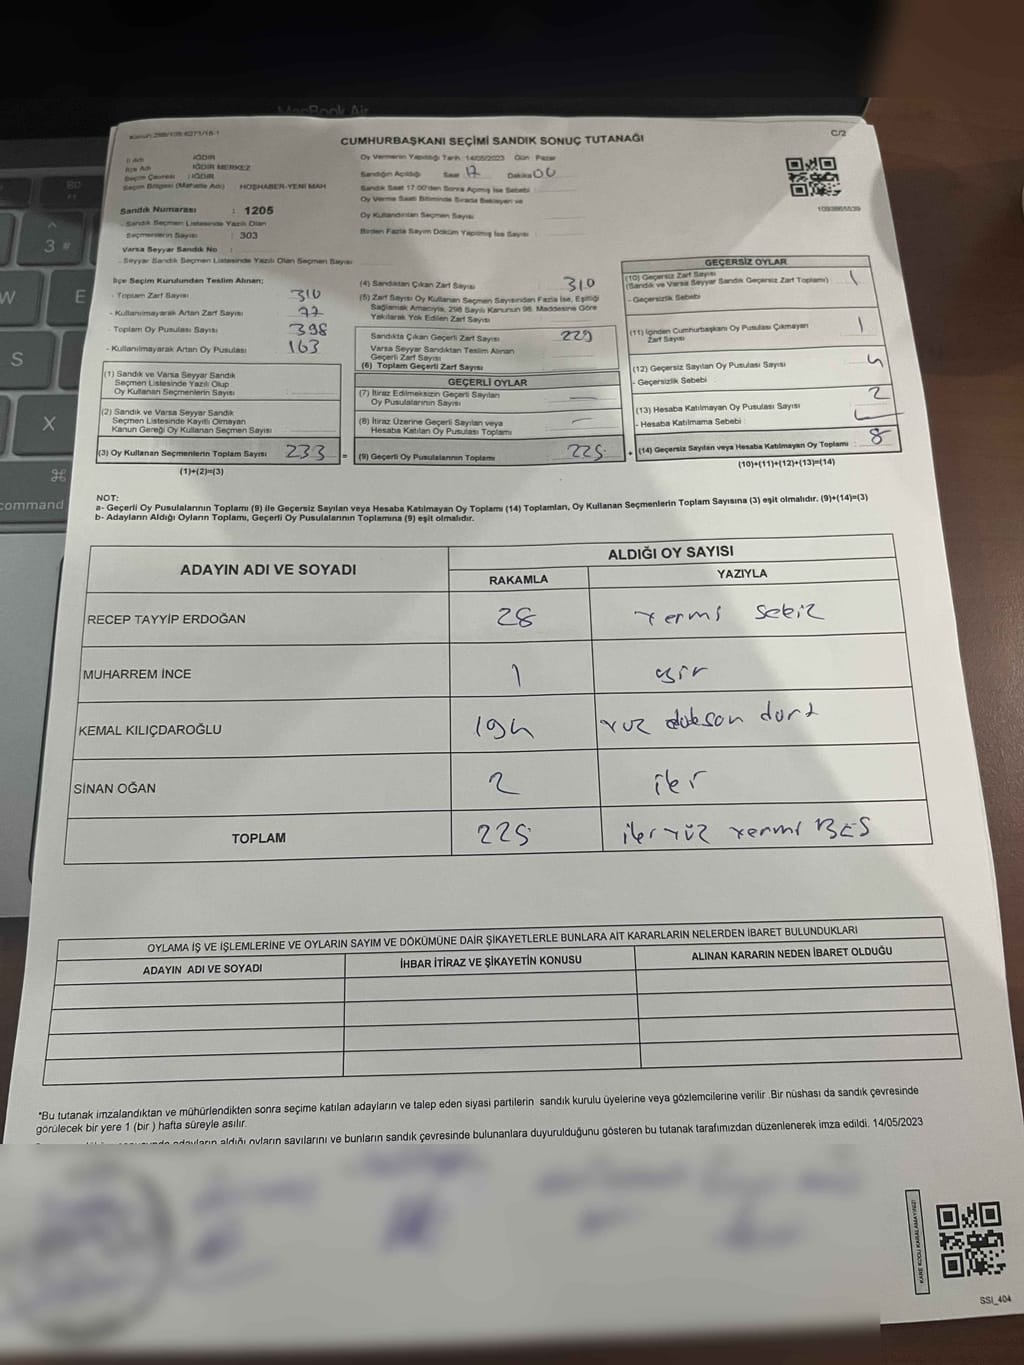 MacBook Air
C/2
CUMHURBAŞKANI SEÇİMİ SANDIK SONUÇ TUTANAĞI
İl Adı : IĞDIR
İlçe Adı : IĞDIR MERKEZ
Seçim Çevresi : IĞDIR
Seçim Bölgesi (Mahalle Adı) : HOŞHABER-YENİ MAH
Sandık Numarası : 1205
- Sandık Seçmen Listesinde Yazılı Olan
Seçmenlerin Sayısı : 303
Varsa Seyyar Sandık No :
- Seyyar Sandık Seçmen Listesinde Yazılı Olan Seçmen Sayısı
Oy Vermenin Yapıldığı Tarih : 14/05/2023 Gün : Pazar
Sandığın Açıldığı Saat 17 Dakika 00
Sandık Saat 17:00'den Sonra Açılmış İse Sebebi
Oy Verme Saati Bitiminde Sırada Bekleyen ve
Oy Kullandırılan Seçmen Sayısı
Birden Fazla Sayım Döküm Yapılmış İse Sayısı
1093865539
İlçe Seçim Kurulundan Teslim Alınan;
- Toplam Zarf Sayısı 310
- Kullanılmayarak Artan Zarf Sayısı 77
- Toplam Oy Pusulası Sayısı 398
- Kullanılmayarak Artan Oy Pusulası 163
(1) Sandık ve Varsa Seyyar Sandık
Seçmen Listesinde Yazılı Olup
Oy Kullanan Seçmenlerin Sayısı
(2) Sandık ve Varsa Seyyar Sandık
Seçmen Listesinde Kayıtlı Olmayan
Kanun Gereği Oy Kullanan Seçmen Sayısı
(3) Oy Kullanan Seçmenlerin Toplam Sayısı 233 =
(1)+(2)=(3)
(4) Sandıktan Çıkan Zarf Sayısı 310
(5) Zarf Sayısı Oy Kullanan Seçmen Sayısından Fazla İse, Eşitliği
Sağlamak Amacıyla, 298 Sayılı Kanunun 98. Maddesine Göre
Yakılarak Yok Edilen Zarf Sayısı
Sandıkta Çıkan Geçerli Zarf Sayısı 229
Varsa Seyyar Sandıktan Teslim Alınan
Geçerli Zarf Sayısı
(6) Toplam Geçerli Zarf Sayısı
GEÇERLİ OYLAR
(7) İtiraz Edilmeksizin Geçerli Sayılan
Oy Pusulalarının Sayısı —
(8) İtiraz Üzerine Geçerli Sayılan veya
Hesaba Katılan Oy Pusulası Toplamı —
(9) Geçerli Oy Pusulalarının Toplamı 225 +
GEÇERSİZ OYLAR
(10) Geçersiz Zarf Sayısı
(Sandık ve Varsa Seyyar Sandık Geçersiz Zarf Toplamı) 1
- Geçersizlik Sebebi
(11) İçinden Cumhurbaşkanı Oy Pusulası Çıkmayan 1
Zarf Sayısı
(12) Geçersiz Sayılan Oy Pusulası Sayısı 4
- Geçersizlik Sebebi :
(13) Hesaba Katılmayan Oy Pusulası Sayısı 2
- Hesaba Katılmama Sebebi :
(14) Geçersiz Sayılan veya Hesaba Katılmayan Oy Toplamı : 8
(10)+(11)+(12)+(13)=(14)
NOT:
a- Geçerli Oy Pusulalarının Toplamı (9) ile Geçersiz Sayılan veya Hesaba Katılmayan Oy Toplamı (14) Toplamları, Oy Kullanan Seçmenlerin Toplam Sayısına (3) eşit olmalıdır. (9)+(14)=(3)
b- Adayların Aldığı Oyların Toplamı, Geçerli Oy Pusulalarının Toplamına (9) eşit olmalıdır.
ADAYIN ADI VE SOYADI ALDIĞI OY SAYISI
RAKAMLA YAZIYLA
RECEP TAYYİP ERDOĞAN 28 yermi sekiz
MUHARREM İNCE 1 bir
KEMAL KILIÇDAROĞLU 194 yuz doksan dort
SİNAN OĞAN 2 iki
TOPLAM 225 iki yüz yermi BES
OYLAMA İŞ VE İŞLEMLERİNE VE OYLARIN SAYIM VE DÖKÜMÜNE DAİR ŞİKAYETLERLE BUNLARA AİT KARARLARIN NELERDEN İBARET BULUNDUKLARI
ADAYIN ADI VE SOYADI İHBAR İTİRAZ VE ŞİKAYETİN KONUSU ALINAN KARARIN NEDEN İBARET OLDUĞU
*Bu tutanak imzalandıktan ve mühürlendikten sonra seçime katılan adayların ve talep eden siyasi partilerin sandık kurulu üyelerine veya gözlemcilerine verilir .Bir nüshası da sandık çevresinde
görülecek bir yere 1 (bir ) hafta süreyle asılır.
adayların aldığı oyların sayılarını ve bunların sandık çevresinde bulunanlara duyurulduğunu gösteren bu tutanak tarafımızdan düzenlenerek imza edildi. 14/05/2023
KARE KODU KARALAMAYINIZ!
SSI_404
3 #
W
E
S
X
⌘
command